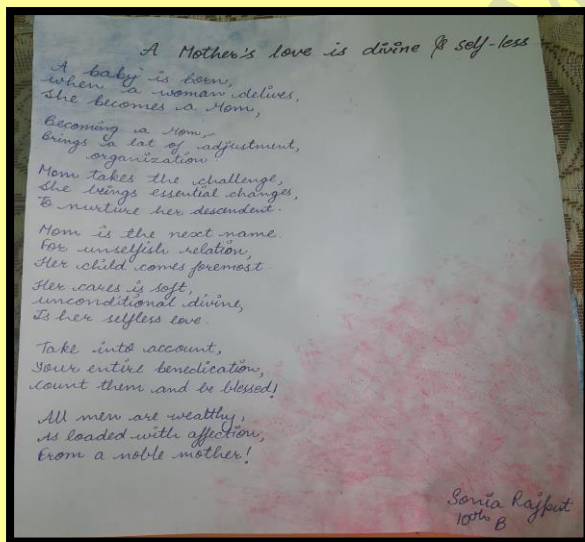 A Mother's love is divine & self-less
A baby is born,
when a woman delives,
She becomes a Mom,
Becoming a Mom,
Brings a lot of adjustment,
organization.
Mom takes the challenge,
She brings essential changes,
To nurture her descendent.
Mom is the next name
For unselfish relation,
Her child comes foremost.
Her cares is soft,
unconditional divine,
Is her selfless love.
Take into account,
Your entire benedication,
count them and be blessed!
All men are wealthy,
As loaded with affection,
From a noble mother!
Sonia Rajput
10th B